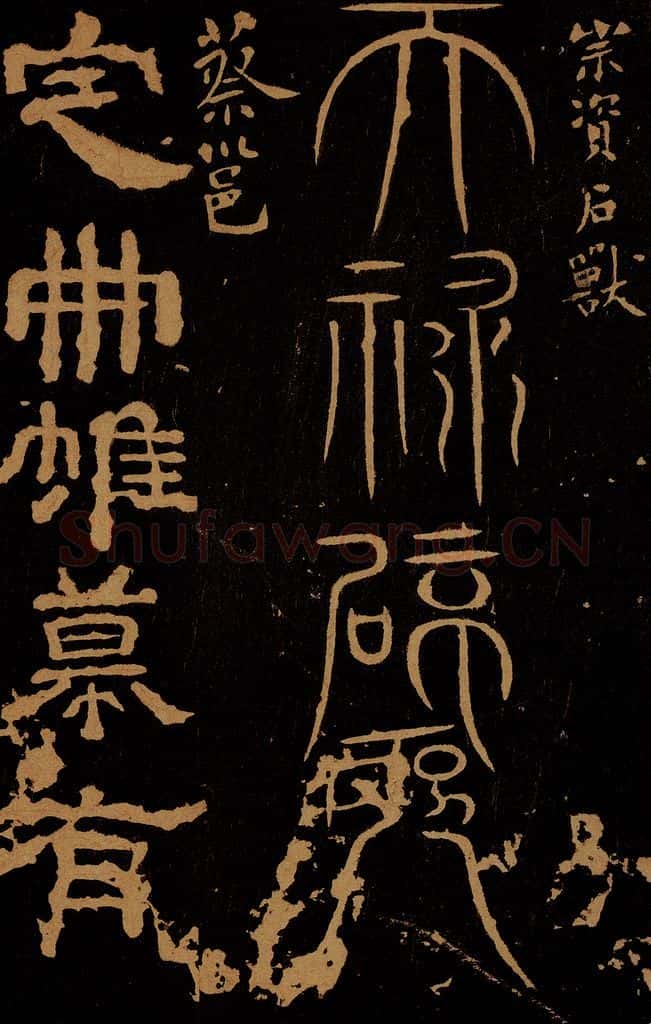 崇資石獸
天祿
蔡邕
定冊帷幕有
Shufawang.CN